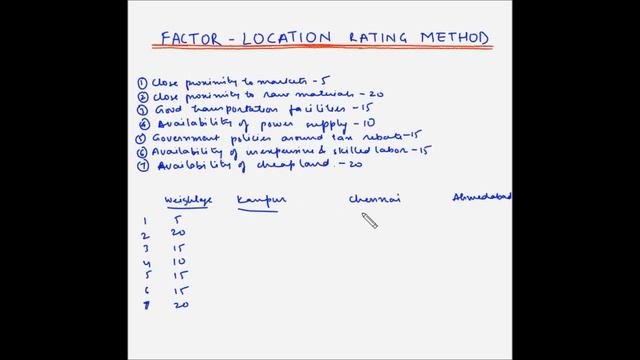 FACTOR - LOCATION RATING METHOD
① Close proximity to markets - 5
② Close proximity to raw materials - 20
③ Good transportation facilities - 15
④ Availability of power supply - 10
⑤ Government policies around tax rebate - 15
⑥ Availability of inexpensive & skilled labor - 15
⑦ Availability of cheap land. - 20
Weightage Kanpur Chennai Ahmedabad
1 5
2 20
3 15
4 10
5 15
6 15
7 20